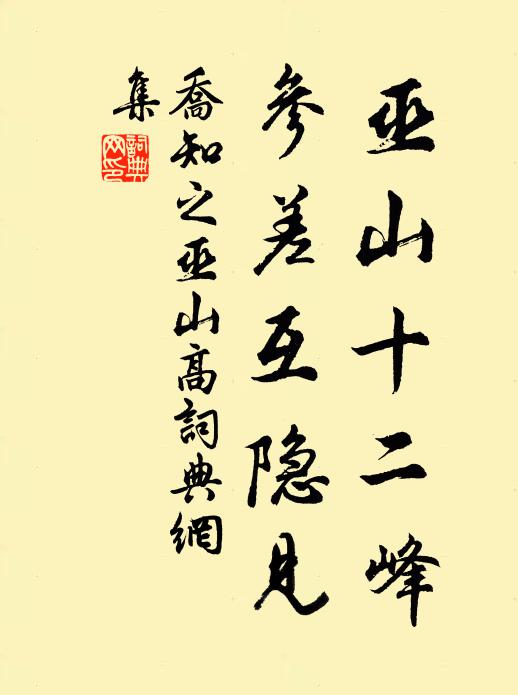 巫山十二峰
參差互隐見
喬知之巫山高詞典網
集
詞典
网印